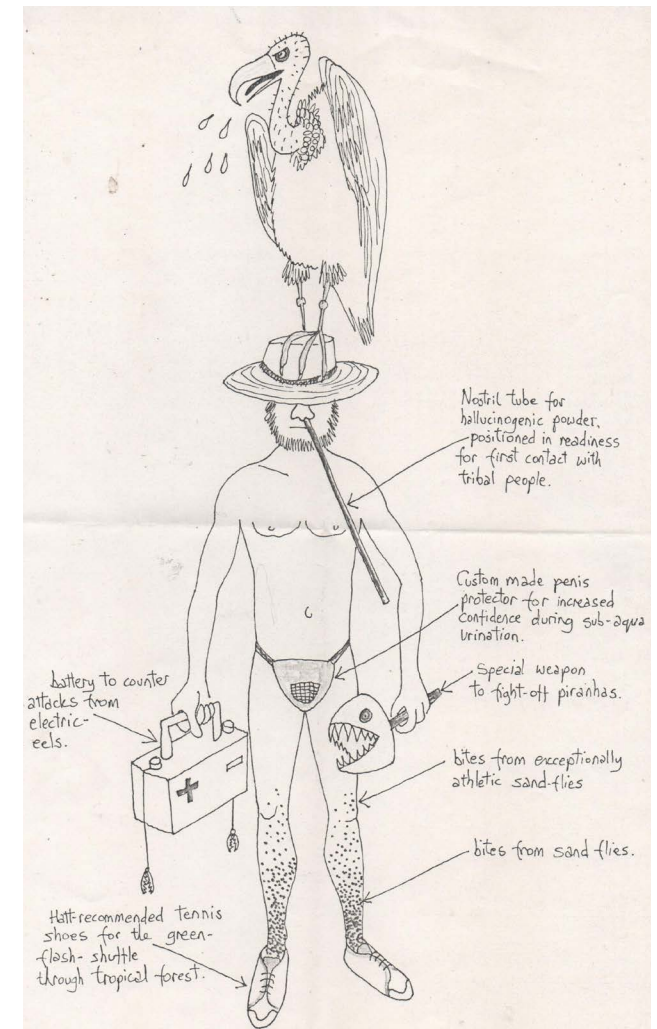 Nostril tube for
hallucinogenic powder,
positioned in readiness
for first contact with
tribal people.
Custom made penis
protector for increased
confidence during sub-aqua
urination.
Special weapon
to fight-off piranhas.
battery to counter
attacks from
electric-
eels.
bites from exceptionally
athletic sand-flies
bites from sand flies.
Hatt-recommended tennis
shoes for the green-
flash- shuttle
through tropical forest.